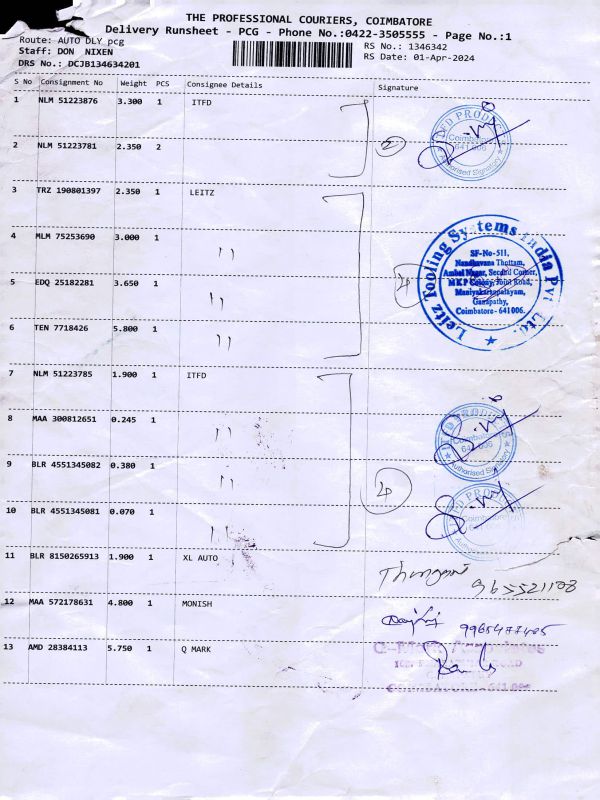 THE PROFESSIONAL COURIERS, COIMBATORE
Delivery Runsheet - PCG - Phone No.:0422-3505555 - Page No.:1
Route: AUTO DLY pcg
RS No.: 1346342
Staff: DON NIXEN
RS Date: 01-Apr-2024
DRS No.: DCJB134634201
S No Consignment No Weight PCS Consignee Details Signature
1 NLM 51223876 3.300 1 ITFD
2 NLM 51223781 2.350 2
Coimbatore
641 006
Authorised Signatory
3 TRZ 190801397 2.350 1 LEITZ
4 MLM 75253690 3.000 1 11
5 EDQ 25182281 3.650 1 11
6 TEN 7718426 5.800 1 11
Leitz Tooling Systems India Pvt Ltd.
SF-No-511,
Nandhavana Thottam,
Ambal Nagar, Second Corner,
MKP Colony, Joint Road,
Maniyakarapalayam,
Ganapathy,
Coimbatore - 641006.
7 NLM 51223785 1.900 1 ITFD
8 MAA 300812651 0.245 1 11
9 BLR 4551345082 0.380 1 11
Authorised Signatory
10 BLR 4551345081 0.070 1 11
11 BLR 8150265913 1.900 1 XL AUTO
12 MAA 572178631 4.800 1 MONISH
13 AMD 28384113 5.750 1 Q MARK